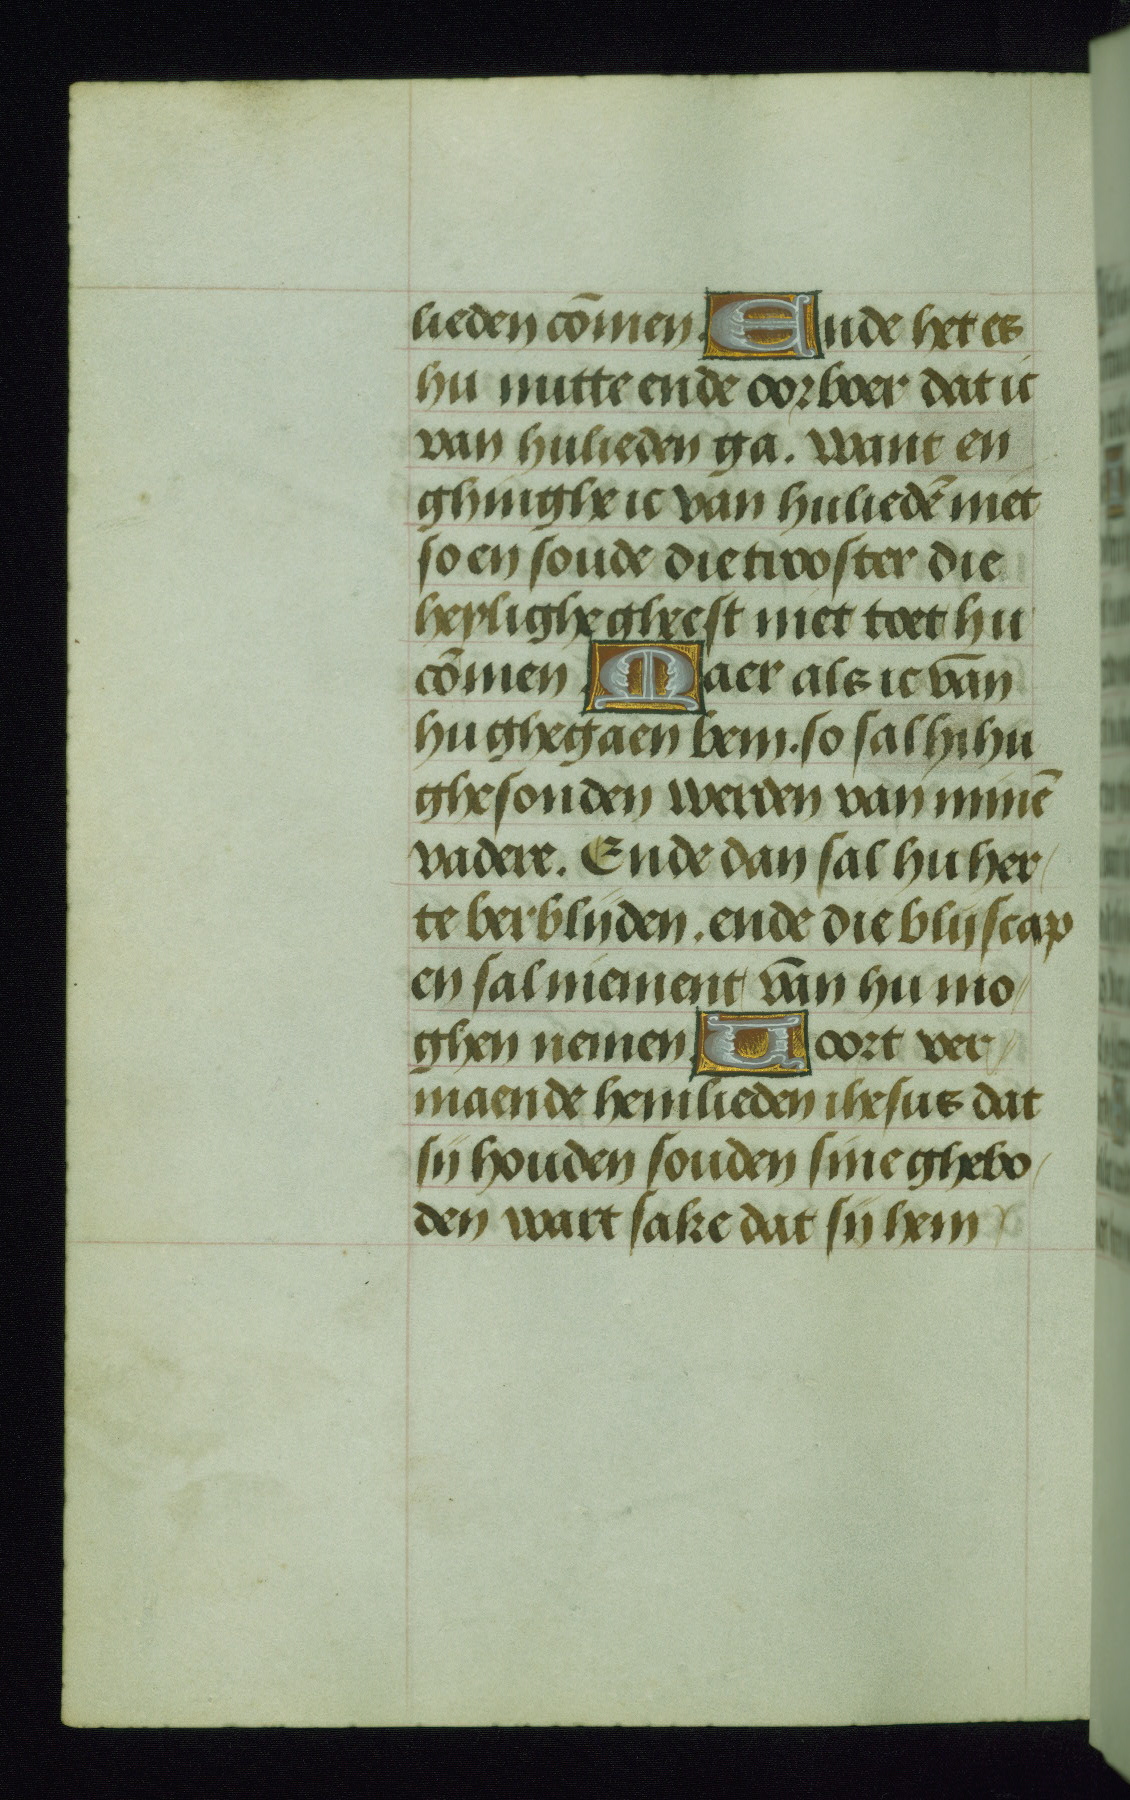 lieden cōmen. Ende het es
hu nutte ende oorboer dat ic
van hulieden ga. Want en
ghinghe ic van huliedē niet
so en soude die trooster die
heylighe gheest niet toet hu
cōmen. Maer als ic vā̄n
hu ghegaen bem. so sal hi hu
ghesonden werden van minē
vadere. Ende dan sal hu her/
te verblijden. ende die blijscap
en sal niement vān hu mo/
ghen nemen. Voort ver/
maende hemlieden ihesus dat
sij houden souden sine ghebo/
den wart sake dat sij hem